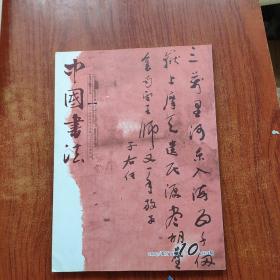 中國書法
三萬里河東入海
五千仞嶽上摩天遺民淚盡胡塵
裏南望王師又一年放翁
于右任
10